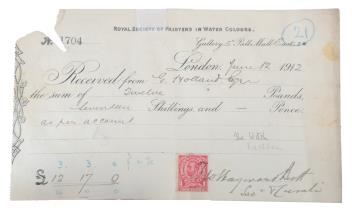 ROYAL SOCIETY OF PAINTERS IN WATER COLOURS.
21
No. 1704
Gallery, 5a Pall Mall East
London, June 12 1912
Received from G. Holland Esqre
the sum of Twelve Pounds,
Seventeen Shillings and — Pence.
as per account
3 3 6
£ 12 17 0
Hayward Butt
Sec